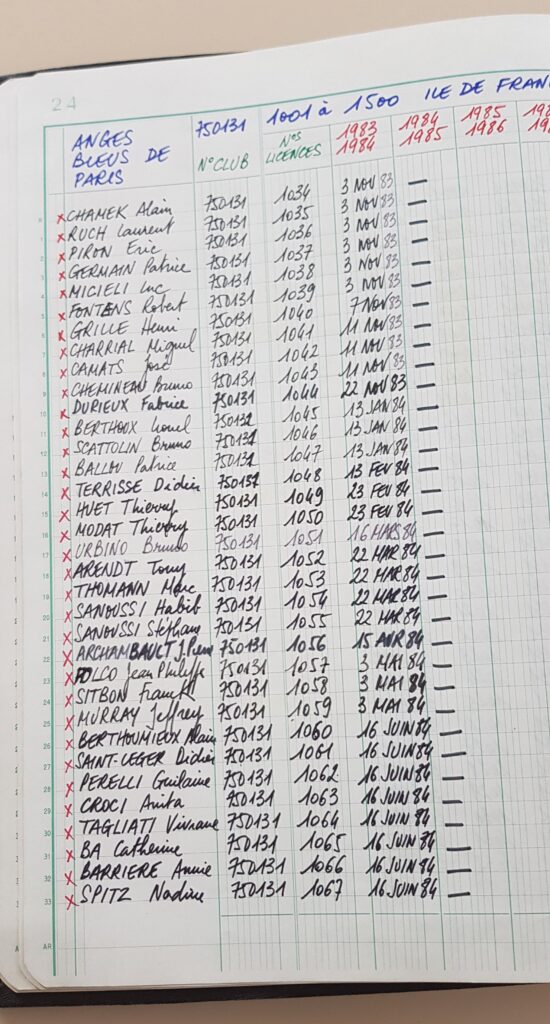 24
ANGES BLEUS DE PARIS 750131 1001 à 1500 ILE DE FRAN
N° CLUB N°S LICENCES 1983 1984 1984 1985 1985 1986 19 19
x CHAMEK Alain 750131 1034 3 NOV 83 —
x RUCH Laurent 750131 1035 3 NOV 83 —
x PIRON Eric 750131 1036 3 NOV 83 —
x GERMAIN Patrice 750131 1037 3 NOV 83 —
x MICIELI Luc 750131 1038 3 NOV 83 —
x FONTENS Robert 750131 1039 3 NOV 83 —
x GRILLE Henri 750131 1040 7 NOV 83 —
x CHARRIAL Miguel 750131 1041 11 NOV 83 —
x CAMATS José 750131 1042 11 NOV 83 —
x CHEMINEAU Bruno 750131 1043 11 NOV 83 —
x DURIEUX Fabrice 750131 1044 22 NOV 83 —
x BERTHOUX Lionel 750131 1045 13 JAN 84 —
x SCATTOLIN Bruno 750131 1046 13 JAN 84 —
x BALLOU Patrice 750131 1047 13 JAN 84 —
x TERRISSE Didier 750131 1048 13 FEV 84 —
x HUET Thierry 750131 1049 23 FEV 84 —
x MODAT Thierry 750131 1050 23 FEV 84 —
x URBINO Bruno 750131 1051 16 MARS 84 —
x ARENDT Tony 750131 1052 22 MAR 84 —
x THOMANN Marc 750131 1053 22 MAR 84 —
x SANOUSSI Habib 750131 1054 22 MAR 84 —
x SANOUSSI Stéphane 750131 1055 22 MAR 84 —
x ARCHAMBAULT J.Pierre 750131 1056 15 AVR 84 —
x FOLCO Jean Philippe 750131 1057 3 MAI 84 —
x SITBON Franck 750131 1058 3 MAI 84 —
x MURRAY Jeffrey 750131 1059 3 MAI 84 —
x BERTHOUMIEUX Alain 750131 1060 16 JUIN 84 —
x SAINT-LEGER Didier 750131 1061 16 JUIN 84 —
x PERELLI Guilaine 750131 1062 16 JUIN 84 —
x CROCI Anita 750131 1063 16 JUIN 84 —
x TAGLIATI Viviane 750131 1064 16 JUIN 84 —
x BA Catherine 750131 1065 16 JUIN 84 —
x BARRIERE Annie 750131 1066 16 JUIN 84 —
x SPITZ Nadine 750131 1067 16 JUIN 84 —
AR